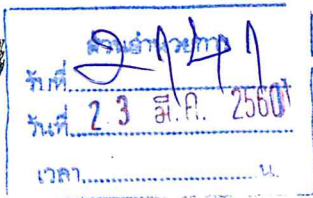 ส่วนอำนวยการ
รับที่ 2741
วันที่ 23 มี.ค. 2560
เวลา........................น.